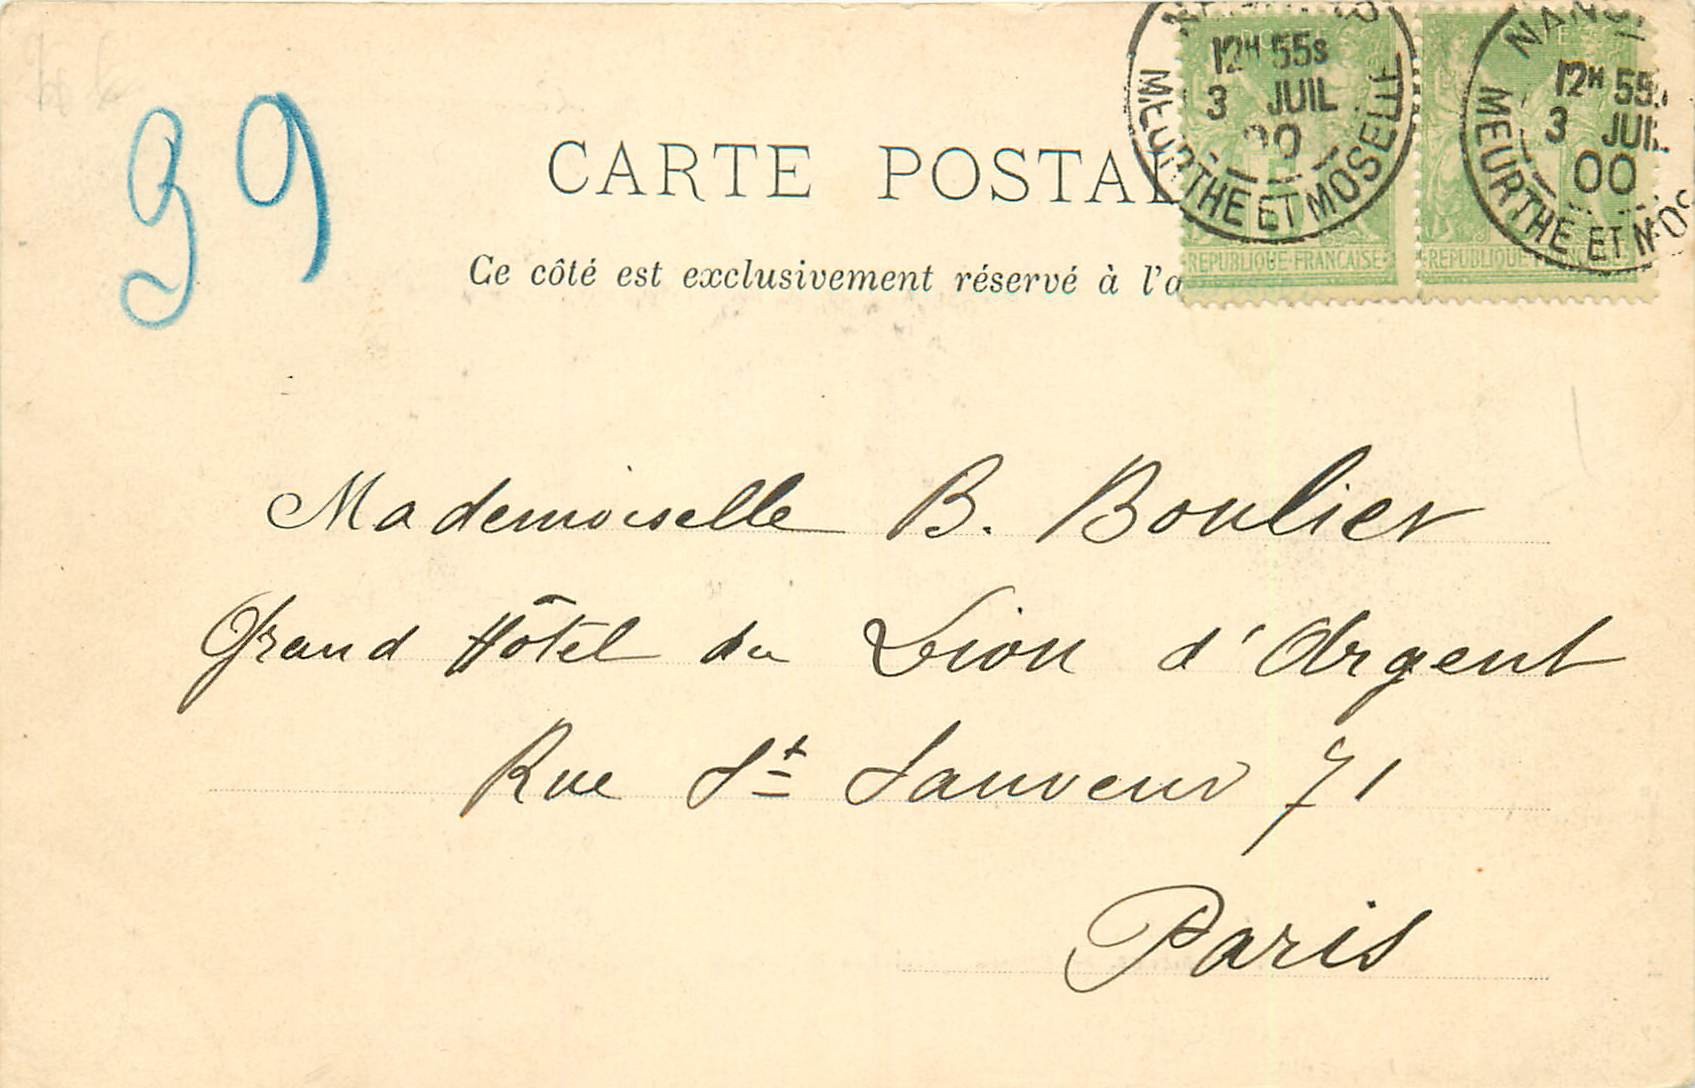 99
CARTE POSTAL
Ce côté est exclusivement réservé à l'a
12H 55S
3 JUIL
00
MEURTHE ET MOSELLE
NANCY
12H 55
3 JUIL
00
MEURTHE ET MOS
REPUBLIQUE·FRANCAISE
REPUBLIQUE·FRANCAISE
Mademoiselle B. Boulier
Grand Hôtel du Lion d'Argent
Rue St Sauveur 71
Paris